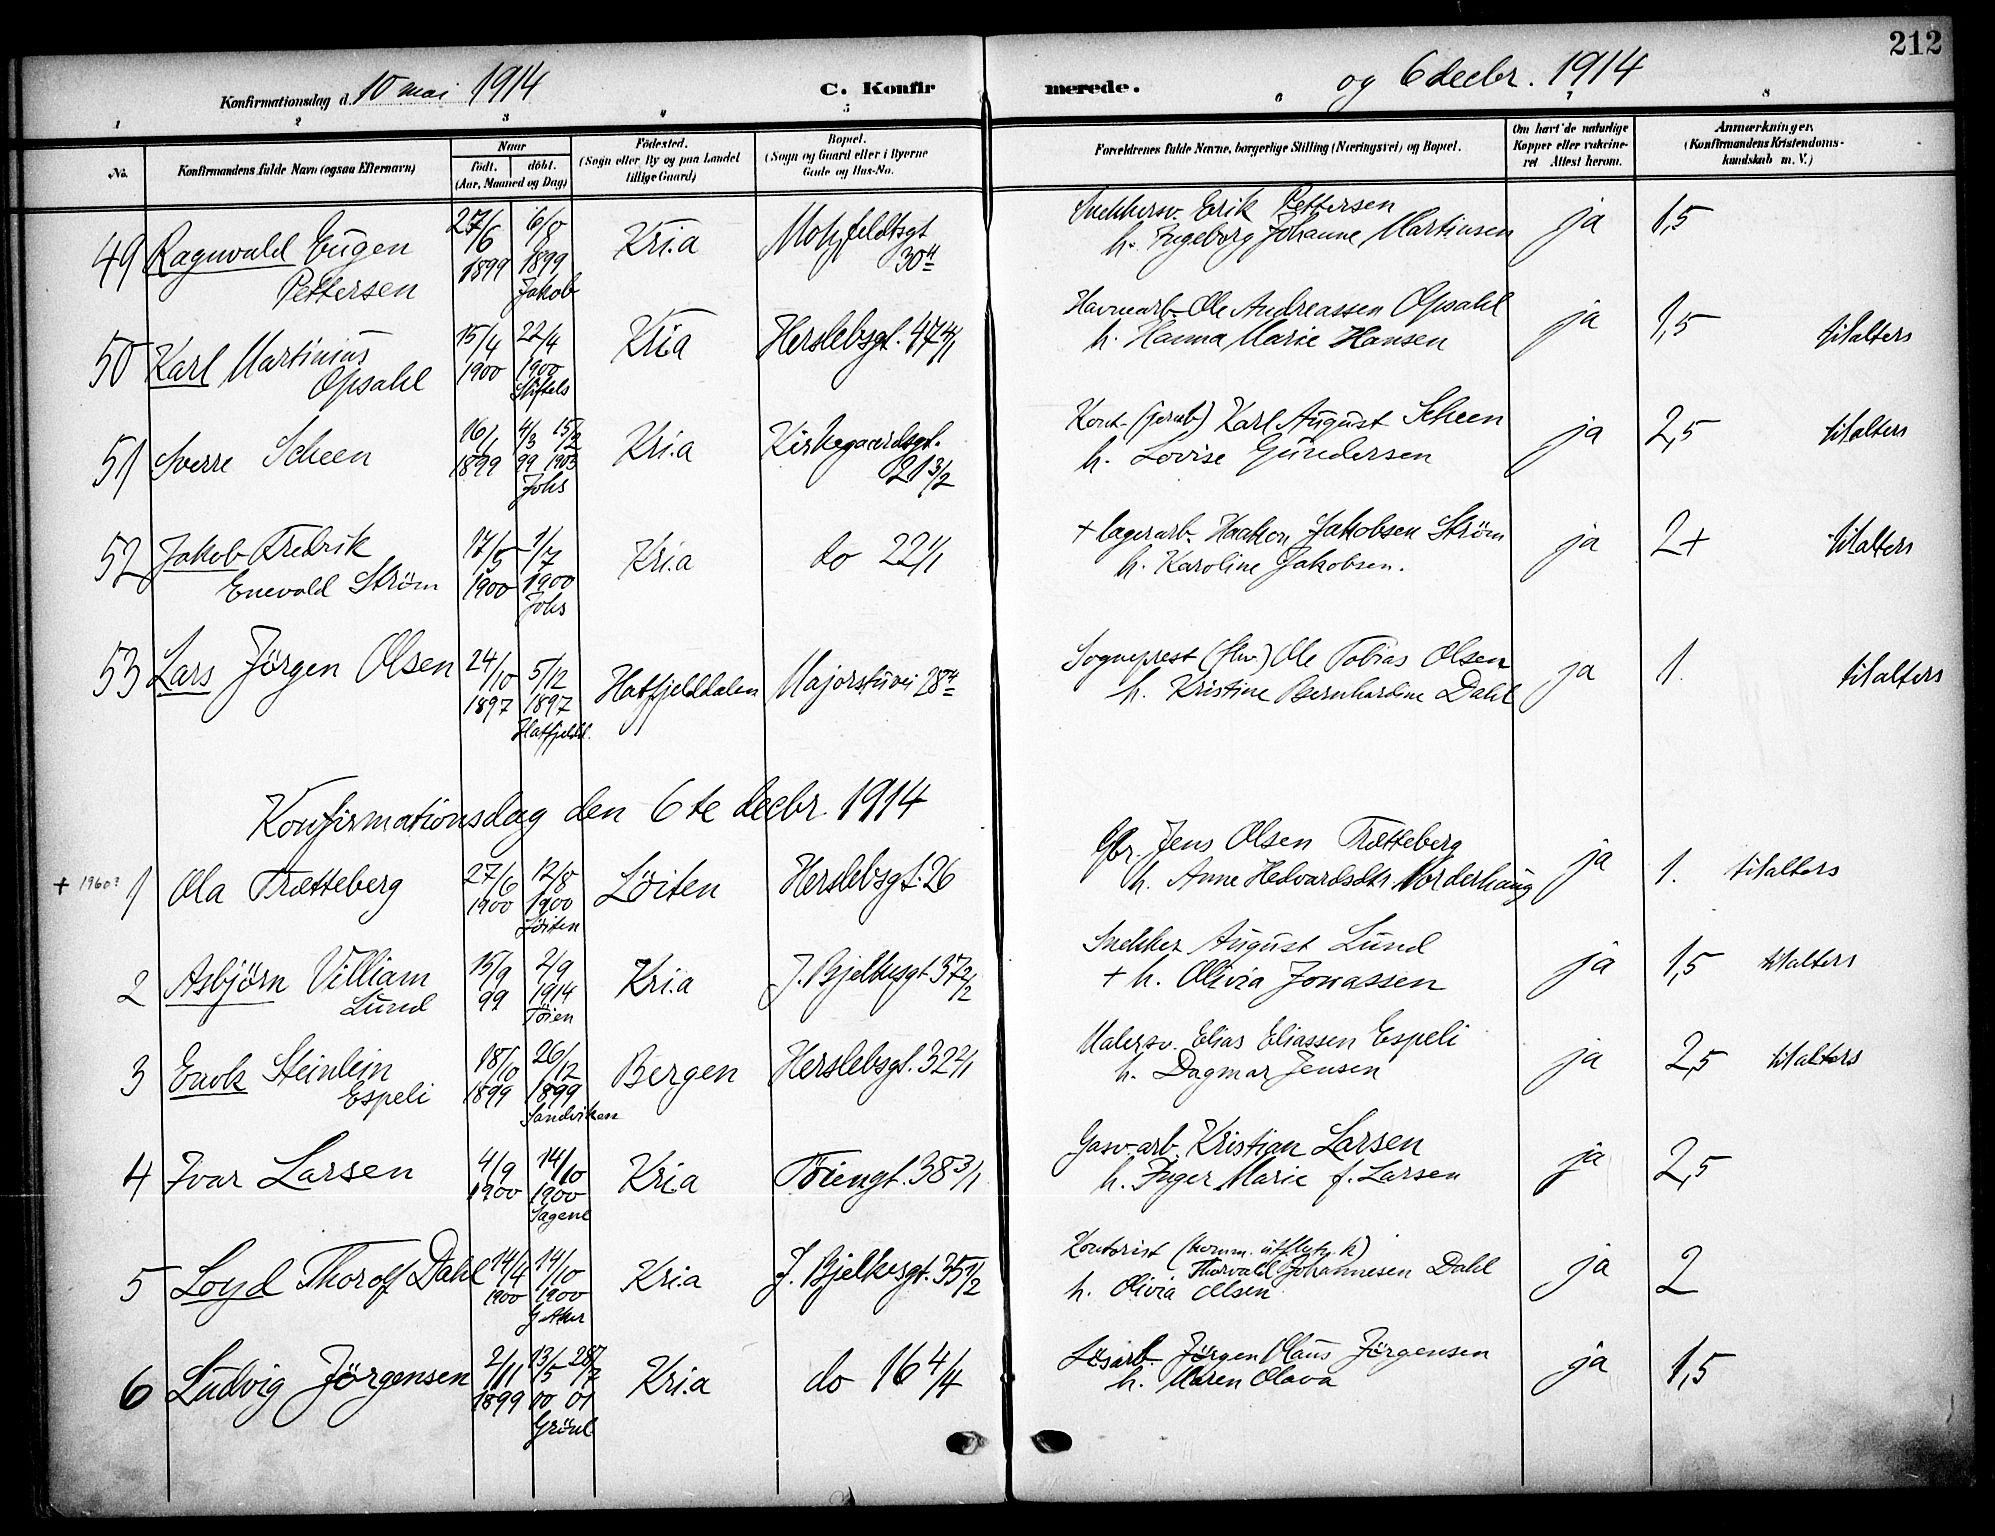 212
Konfirmationsdag d. 10 mai 1914 C. Konfirmerede. og 6 decbr. 1914
1 2 3 4 5 6 7 8
No. Konfirmandens fulde Navn (ogsaa Efternavn) Naar født. døbt. (Aar, Maaned og Dag) Fødested. (Sogn eller By og paa Landet tillige Gaard) Bopæl. (Sogn og Gaard eller i Byerne Gade og Hus-No. Forældrenes fulde Navne, borgerlige Stilling (Næringsvei) og Bopæl. Om havt de naturlige Kopper eller vaccineret Attest herom. Anmærkninger. (Konfirmandens Kristendomskundskab m. V.)
49 Ragnvald Eugen 27/6 6/8 Kria Motzfeldtsgt Snekkersv. Erik Pettersen ja 1,5
Pettersen 1899 1899 Jakob 30 4 h. Ingeborg Johanne Martinsen
50 Karl Martinius 15/4 22/4 Kria Herslebsgt. 47 4/1 Havnearb. Ole Andreassen Opsahl ja 1,5 til alters
Opsahl 1900 1900 Stiftels h. Hanna Marie Hansen
51 Sverre Scheen 16/1 4/3 15/2 Kria Kirkegaardsgt. Kont. (jernb) Karl August Scheen ja 2,5 til alters
1899 99 1903 Johs 21 3/2 h. Lovise Gundersen
52 Jakob Fredrik 17/5 1/7 Kria do 22 1/1 + lagerarb. Haakon Jakobsen Ström ja 2+ til alters
Enevold Ström 1900 1900 Johs h. Karoline Jakobsen.
53 Lars Jörgen Olsen 24/10 5/12 Hatfjelddalen Majorstuvei 28 4 Sogneprest Ole Tobias Olsen ja 1. til alters
1897 1897 Hatfjeldd. h. Kristine Bernhardine Dahl
Konfirmationsdag den 6te decbr. 1914
+ 1960? 1 Ola Trætteberg 27/6 12/8 Löiten Herslebsgt. 26 Gbr. Jens Olsen Trætteberg ja 1. til alters
1900 1900 Löiten h. Anne Hedvardsdtr Norderhaug
2 Asbjörn Villiam 15/9 2/9 Kria J. Bjelkesgt. 37 2/2 Snekker August Lund ja 1,5 til alters
Lund 99 1914 Töien + h. Olivia Jonassen
3 Enok Steinlein 18/10 26/12 Bergen Herslebsgt. 32 2/1 Malersv. Elias Eliassen Espeli ja 2,5 til alters
Espeli 1899 1899 Sandviken h. Dagmar Jensen
4 Ivar Larsen 4/9 14/10 Kria Töiengt. 38 3/1 Gasv.arb. Kristian Larsen ja 2,5
1900 1900 Sagene h. Inger Marie f. Larsen
5 Loyd Thorolf Dahl 14/4 14/10 Kria J. Bjelkesgt. 35 1/2 Kontorist Thorvald Johannesen Dahl ja 2
1900 1900 G Aker h. Olivia Olsen
6 Ludvig Jörgensen 2/11 13/5 28/7 Kria do 16 4/4 Lösarb. Jörgen Claus Jörgensen ja 1,5
1899 00 01 Grönl h. Maren Olava